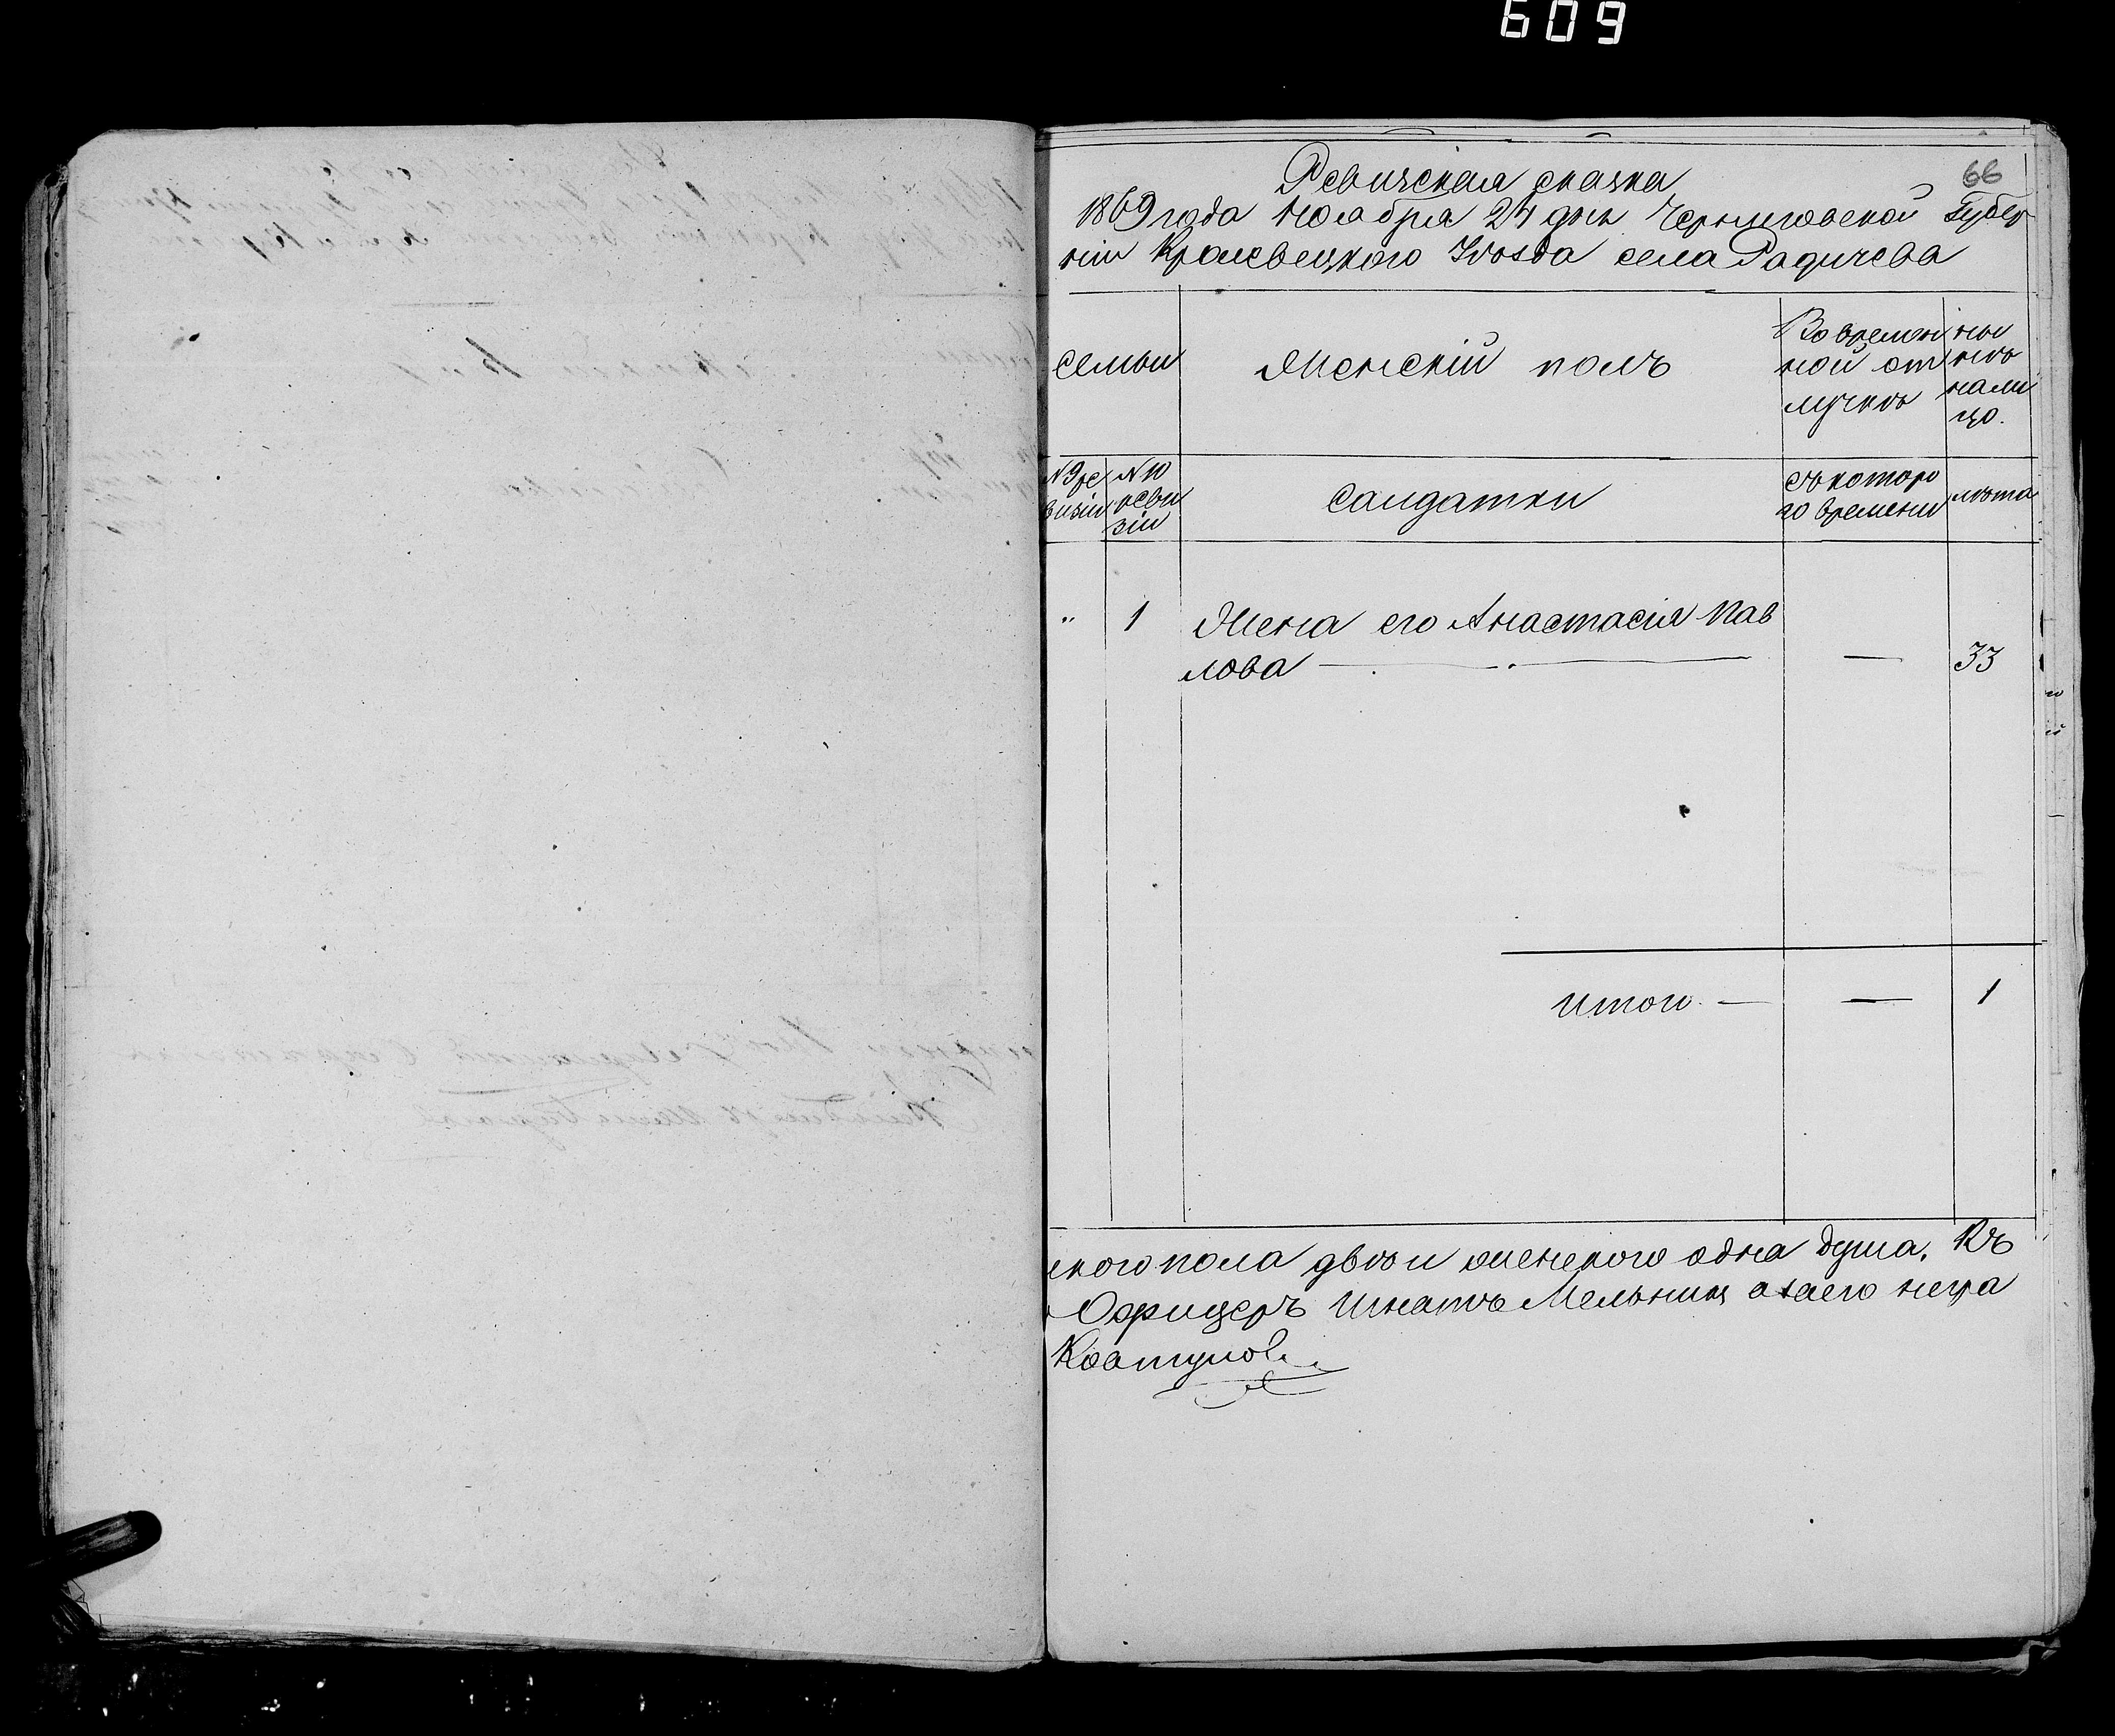 609
66
Ревизская сказка
1869 года Ноября 24 дня Черниговской Губер
ніи Кролевецкого Уѣзда села Радичева
Семьи
Женскій полъ
Во времен
ной от
лучкѣ
ны
нѣ
нали
цо.
№ 9 ре
визіи
№ 10
реви
зіи
Салдатки
Съ которо
го времени
лѣта
" 1 Жена его Анастасія Пав
лова — — 33
Итого — — 1
ского пола двѣ и женского одна душа. Къ
Офицеръ Игнатъ Мельник а за его негра